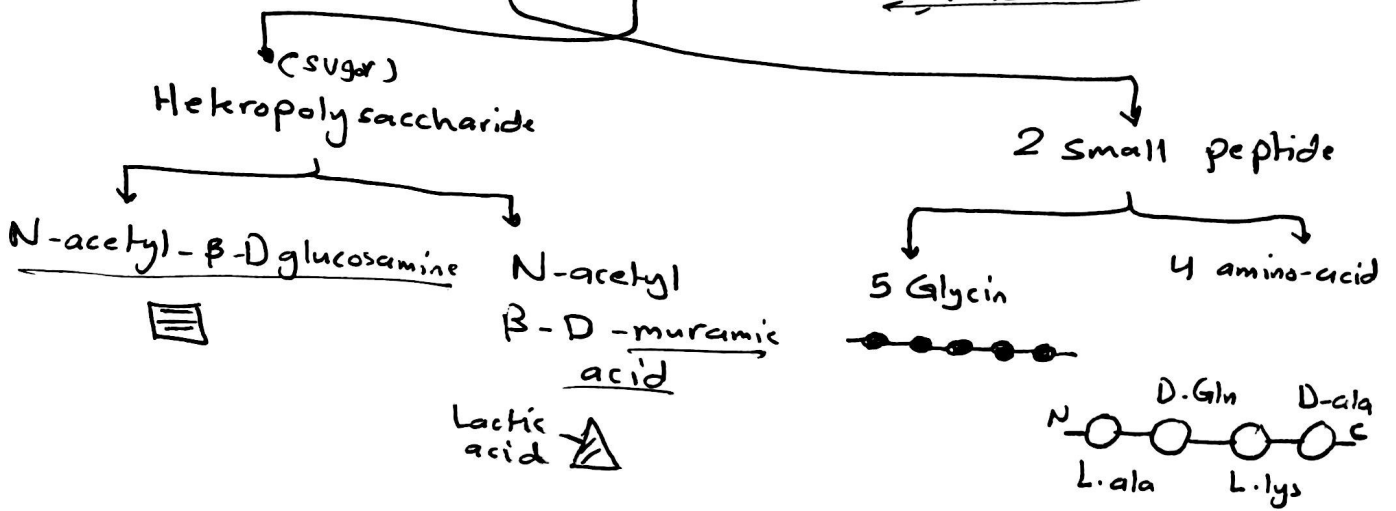 (sugar)
Heteropoly saccharide
2 small peptide
N-acetyl-β-D glucosamine
N-acetyl
β-D-muramic
acid
Lactic
acid
5 Glycin
4 amino-acid
D.Gln D-ala
N C
L.ala L.lys